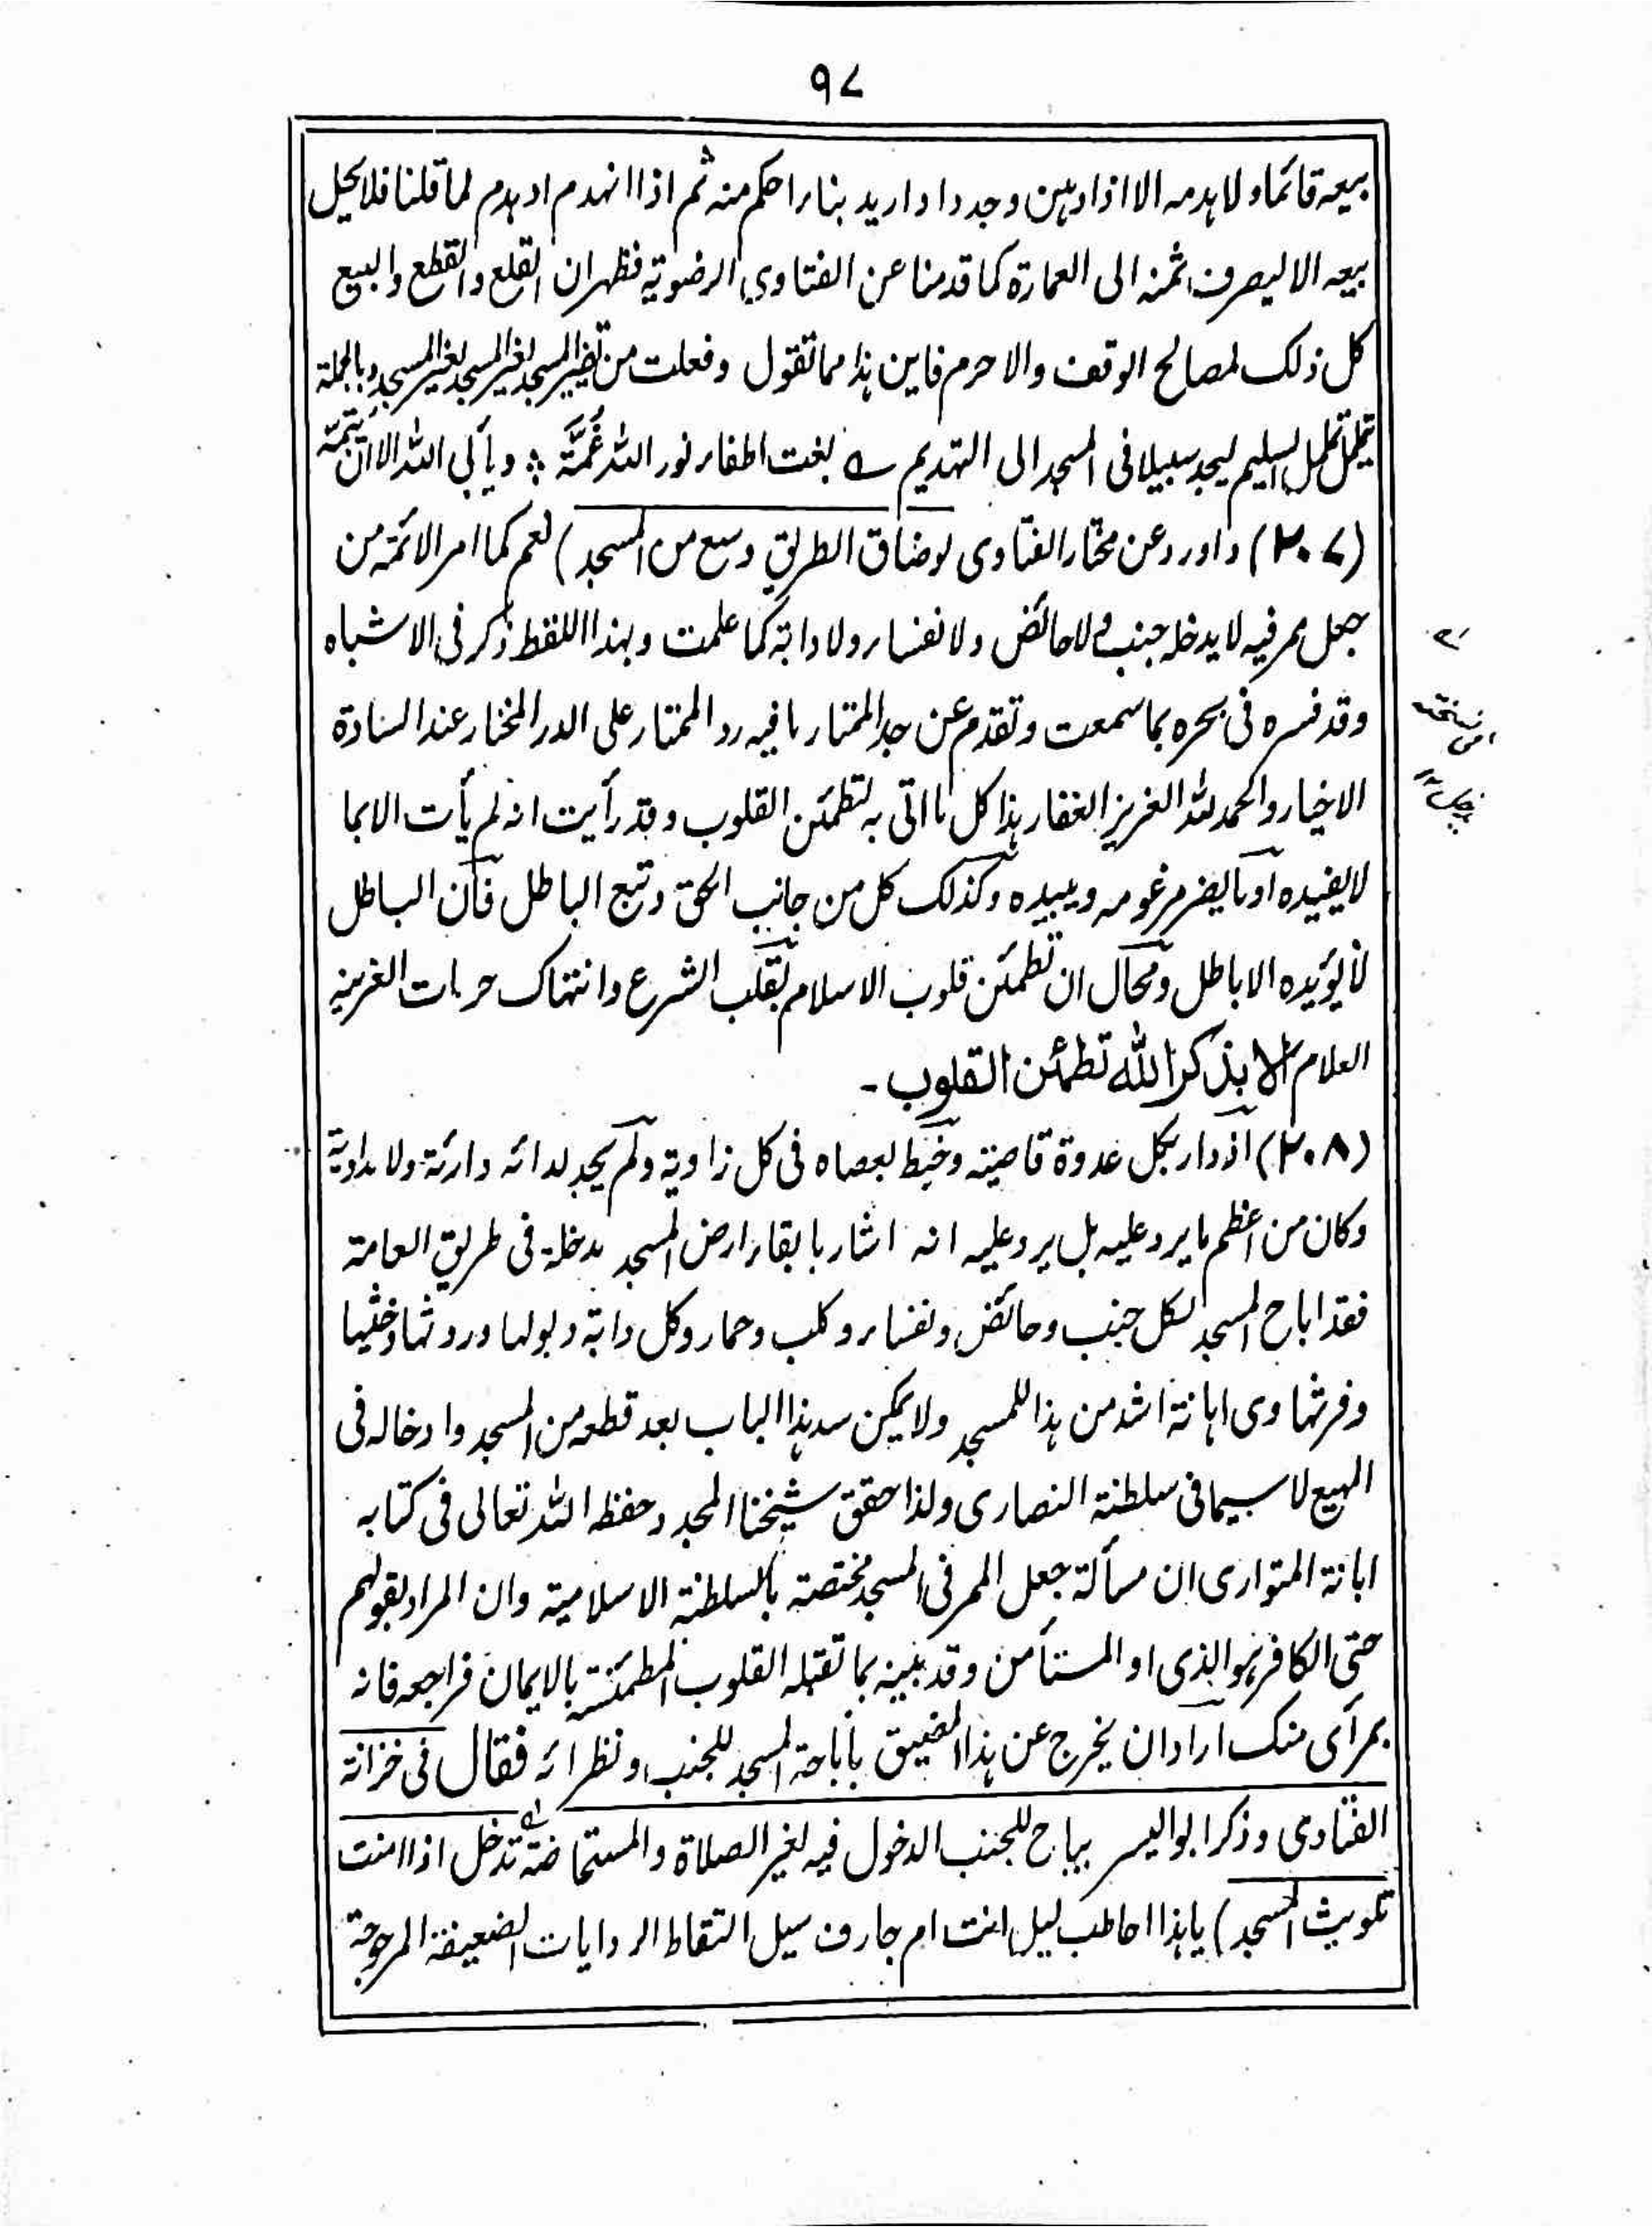 ٩٧
بيعه قائما ولا هدمه الا اذا وهن وجد دا واريد بناء احكم منه ثم اذا انهدم او هدم لما قلنا فلا يحل
بيعه الا ليصرف ثمنه الى العمارة كما قدمنا عن الفتاوى الرضوية فظهر ان القلع والقطع والبيع
كل ذلك لمصالح الوقف والا حرم فاين هذا مما تقول وفعلت من تغيير المسجد لغير المسجد وبالجملة
تململ تململ السليم ليجد سبيلا فى المسجد الى التهديم ؎ بغت اطفاء نور الله غُمَّة ؞ ويأبى الله الا ان يتمه
(٢٠٧) واورد عن مختار الفتاوى لو ضاق الطريق وسع من المسجد) نعم كما امر الائمة من
جعل ممر فيه لا يدخله جنب ولا حائض ولا نفساء ولا دابة كما علمت وبهذا اللفظ ذكر فى الاشباه
وقد فسره فى بحره بما سمعت وتقدم عن جد الممتار ما فيه رد الممتار على الدر المختار عند السادة
الاخيار والحمد لله العزيز الغفار هذا كل ما اتى به لتطمئن القلوب وقد رأيت انه لم يأت الا بما
لا يفيده او بما يضر مرغومه ويبيده وكذلك كل من جانب الحق وتبع الباطل فان الباطل
لا يؤيده الا باطل ومحال ان تطمئن قلوب الاسلام بقلب الشرع وانتهاك حرمات العزيز
العلام الا بذكر الله تطمئن القلوب ـ
(٢٠٨) اذ دار بكل عدوة قاصية وخبط بعصاه فى كل زاوية ولم يجد لدائه دارئة ولا مداوية
وكان من اعظم ما يرد عليه بل يرد عليه انه اشار بابقاء ارض المسجد مدخلة فى طريق العامة
فقد اباح المسجد لكل جنب وحائض ونفساء وكلب وحمار وكل دابة وبولها وروثها وخثيها
وفرثها وى اهانة اشد من هذا للمسجد ولا يمكن سد هذا الباب بعد قطعه من المسجد وادخاله فى
المهيع لا سيما فى سلطنة النصارى ولذا حقق شيخنا المجدد حفظه الله تعالى فى كتابه
ابانة المتوارى ان مسألة جعل الممر فى المسجد مختصة بالسلطنة الاسلامية وان المراد بقولهم
حتى الكافر هو الذمى او المستأمن وقد بينه بما تقبله القلوب المطمئنة بالايمان فراجعه فانه
بمرأى منك اراد ان يخرج عن هذا المضيق باباحة المسجد للجنب ونظرائه فقال فى خزانة
الفتاوى وذكر ابو اليسر يباح للجنب الدخول فيه لغير الصلاة والمستحاضة تدخل اذا امنت
تلويث المسجد) يا هذا احاطب ليل انت ام جارف سيل التقاط الروايات الضعيفة المرجوحة